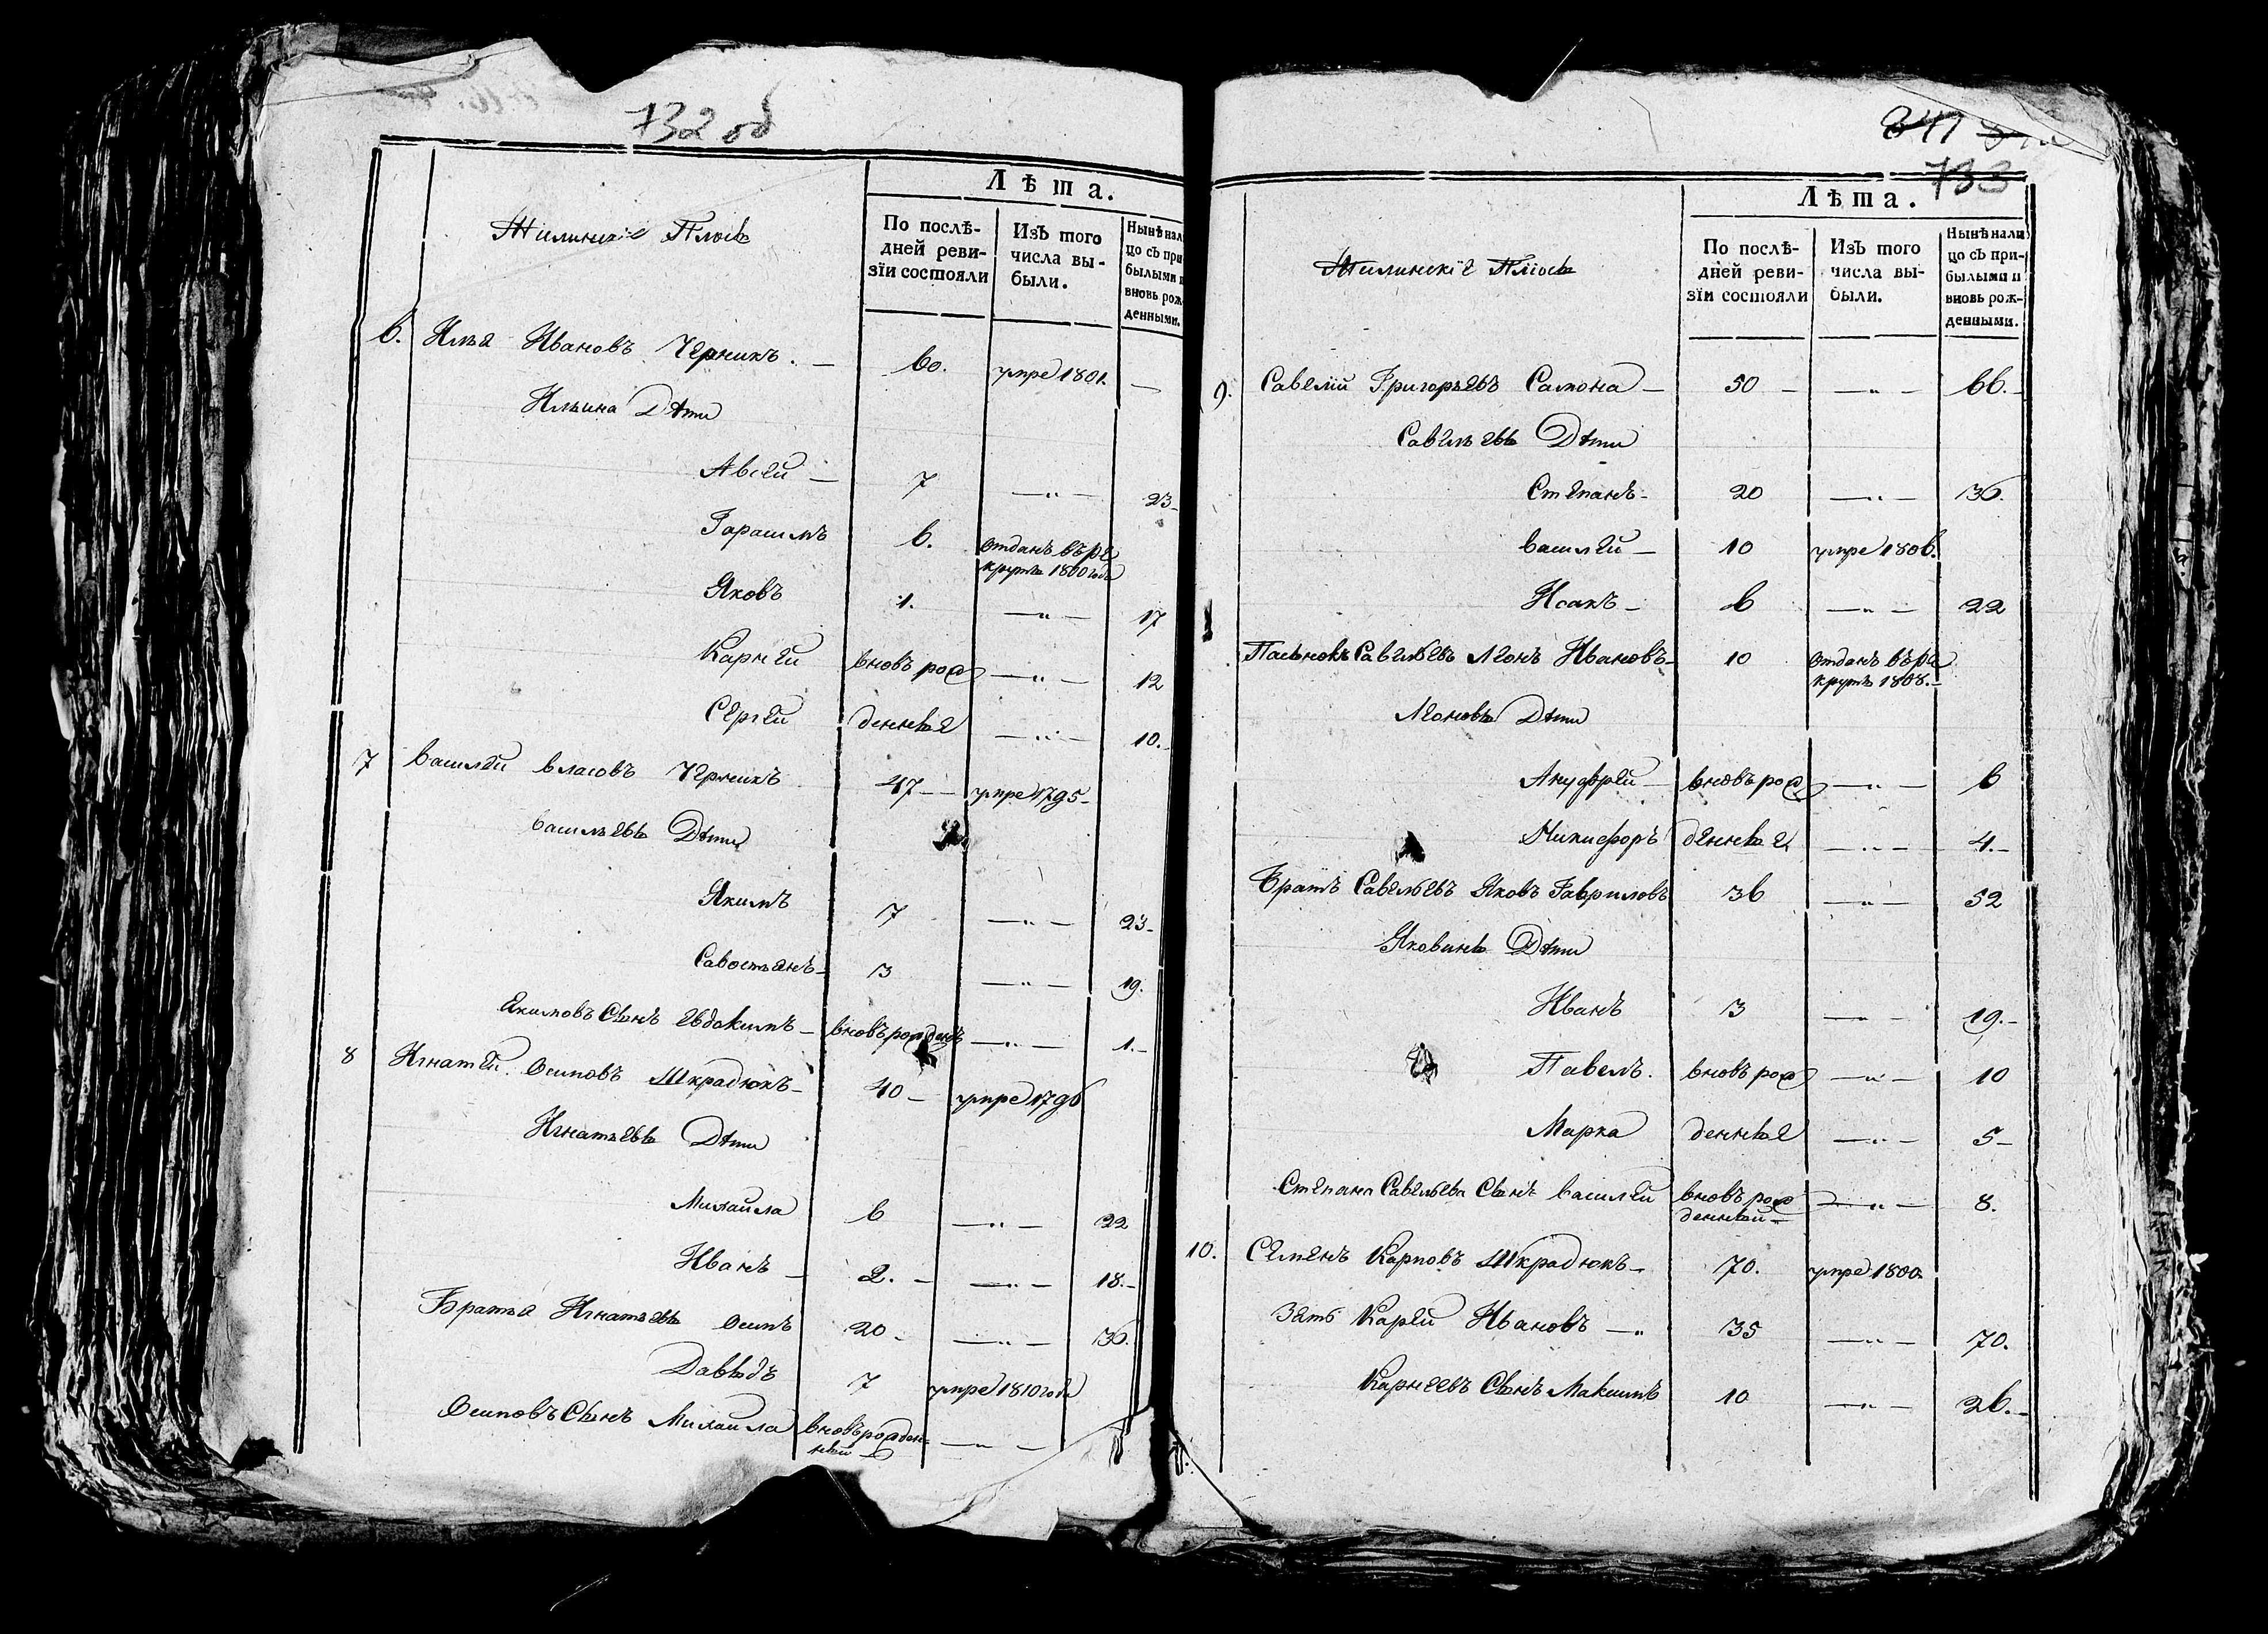 732 об
Лѣта.
По послѣ-
дней реви-
зїи состояли
Изъ того
числа вы-
были.
Нынѣ нали
цо съ при
былыми и
вновь рож-
денными.
6. Илья Ивановъ Черникъ. — 60. умре 1801. —
Ильина Дѣти
Авсей — 7 —"— 23-
Гарасимъ 6. отданъ въ ре
круты 1800 года
Яковъ 1. —"— 17
Карней вновь рож —"— 12
Сергей денныя —"— 10.-
7 Василей власовъ Черникъ 47 — умре 1795-
васильевы Дѣти
Якимъ 7 —"— 23-
Савостьянъ- 3 —"— 19.
Якимовъ Сынъ Евдокимъ — вновь рожденъ —"— 1.-
8 Игнатей Осиповъ Шкрадюкъ- 40 — умре 1796
Игнатьевы Дѣти
Михайла 6 —"— 22
Иванъ — 2. - —"— 18.-
Братья Игнатьевы Осипъ 20 - —"— 36.
Давыдъ 7 умре 1810 года
Осиповъ Сынъ Михайла вновь рожден-
ной —"—
841
733
Лѣта.
По послѣ-
дней реви-
зїи состояли
Изъ того
числа вы-
были.
Нынѣ нали
цо съ при-
былыми и
вновь рож-
денными.
9. Савелїй Григорьевъ Самона — 50 — —"— 66.-
Савельевы Дѣти
Степанъ- 20 —"— 36.
василей — 10 умре 1806.
Исакъ — 6 —"— 22
Пасынокъ Савельевъ Леонъ Ивановъ- 10 отданъ въ ре
круты 1808.-
Леоновы Дѣти
Ануфрей — вновь рож —"— 6
Никифоръ денныя —"— 4.-
Братъ Савельевъ Яковъ Гавриловъ 36 —"— 52
Яковины Дѣти
Иванъ 3 —"— 19.-
Павелъ. вновь рож —"— 10
Марка денныя —"— 5-
Степана Савельева Сынъ василей вновь рож
денной —"— 8.
10. Семенъ Карповъ Шкрадюкъ — 70. умре 1800.
Зять Карней Ивановъ —" 35 —"— 70.
Карнеевъ Сынъ Максимъ 10 —"— 26.-